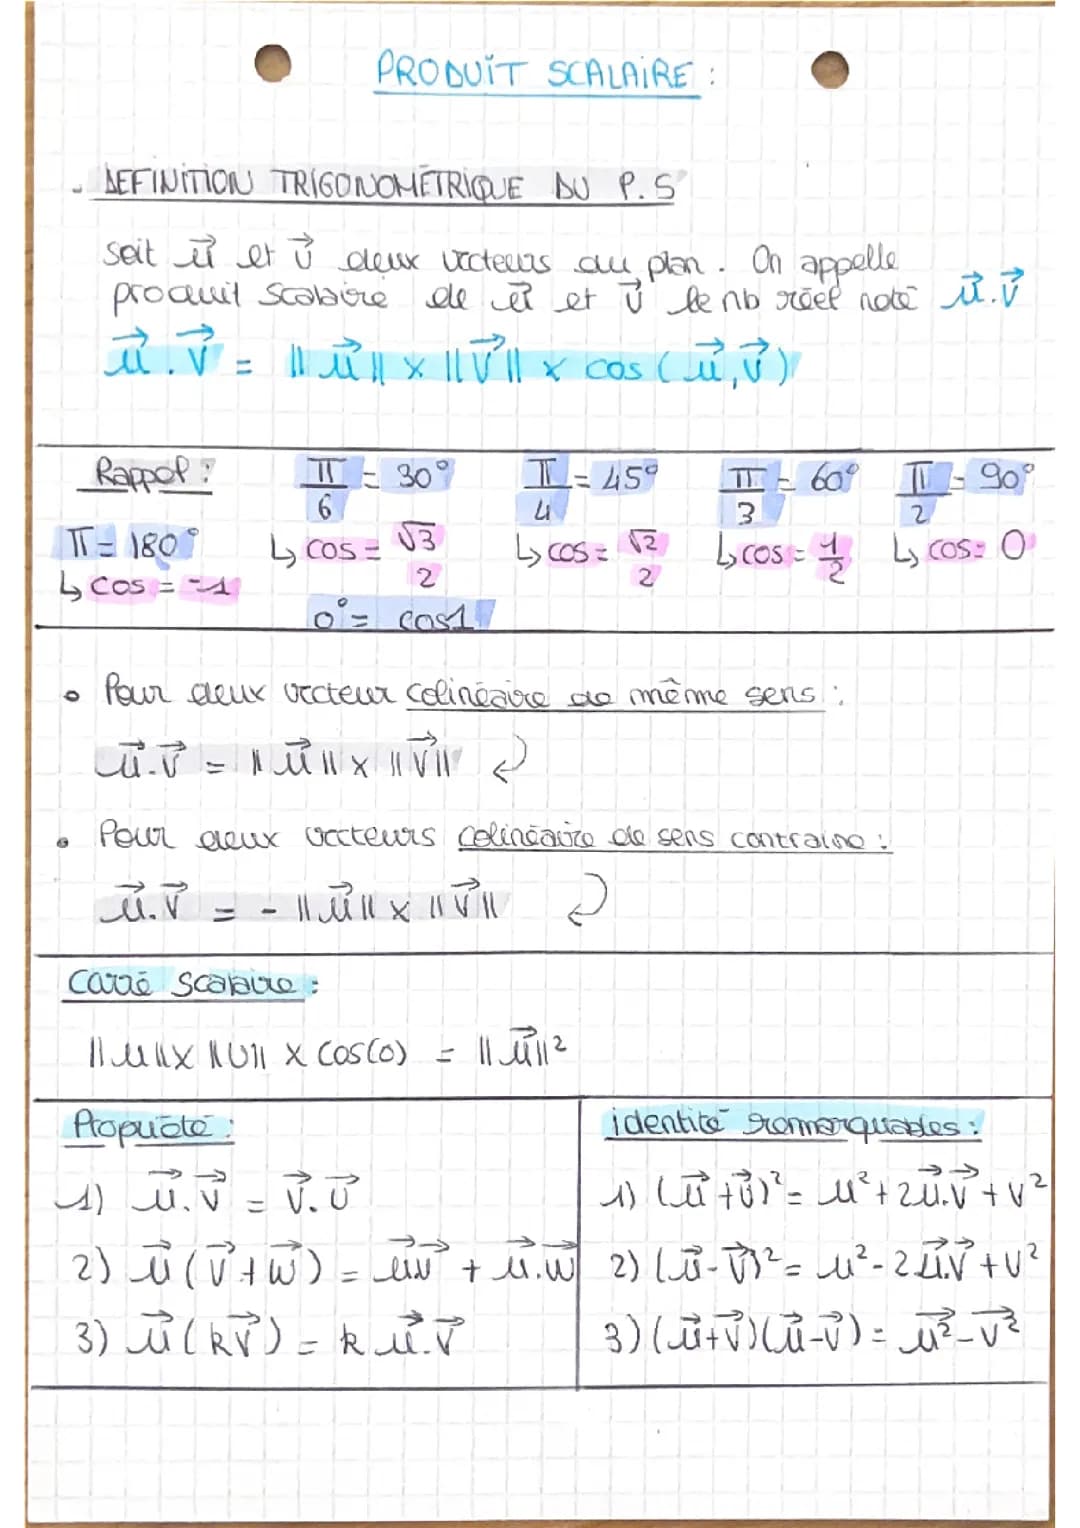 PRODUIT SCALAIRE :
- DEFINITION TRIGONOMÉTRIQUE DU P.S
soit u⃗ et v⃗ deux vecteurs du plan. On appelle
produit scalaire de u⃗ et v⃗ le nb réel noté u⃗.v⃗
u⃗.v⃗ = ||u⃗|| x ||v⃗|| x cos (u⃗,v⃗)
Rappel : π/6 = 30° π/4 = 45° π/3 = 60° π/2 = 90°
π = 180° ↳ cos = √3/2 ↳ cos = √2/2 ↳ cos = 1/2 ↳ cos = 0
↳ cos = -1
0° = cos1
• Pour deux vecteur colinéaire de même sens :
u⃗.v⃗ = ||u⃗|| x ||v⃗||
• Pour deux vecteurs colinéaire de sens contraire :
u⃗.v⃗ = - ||u⃗|| x ||v⃗||
Carré scalaire :
||u|| x ||u|| x cos(0) = ||u⃗||²
Propriété :
1) u⃗.v⃗ = v⃗.u⃗
2) u⃗(v⃗+w⃗) = u⃗v⃗ + u⃗.w⃗
3) u⃗(kv⃗) = k u⃗.v⃗
identité remarquables :
1) (u⃗+v⃗)² = u²+2u⃗.v⃗+v²
2) (u⃗-v⃗)² = u²-2u⃗.v⃗+v²
3) (u⃗+v⃗)(u⃗-v⃗) = u⃗²-v⃗²